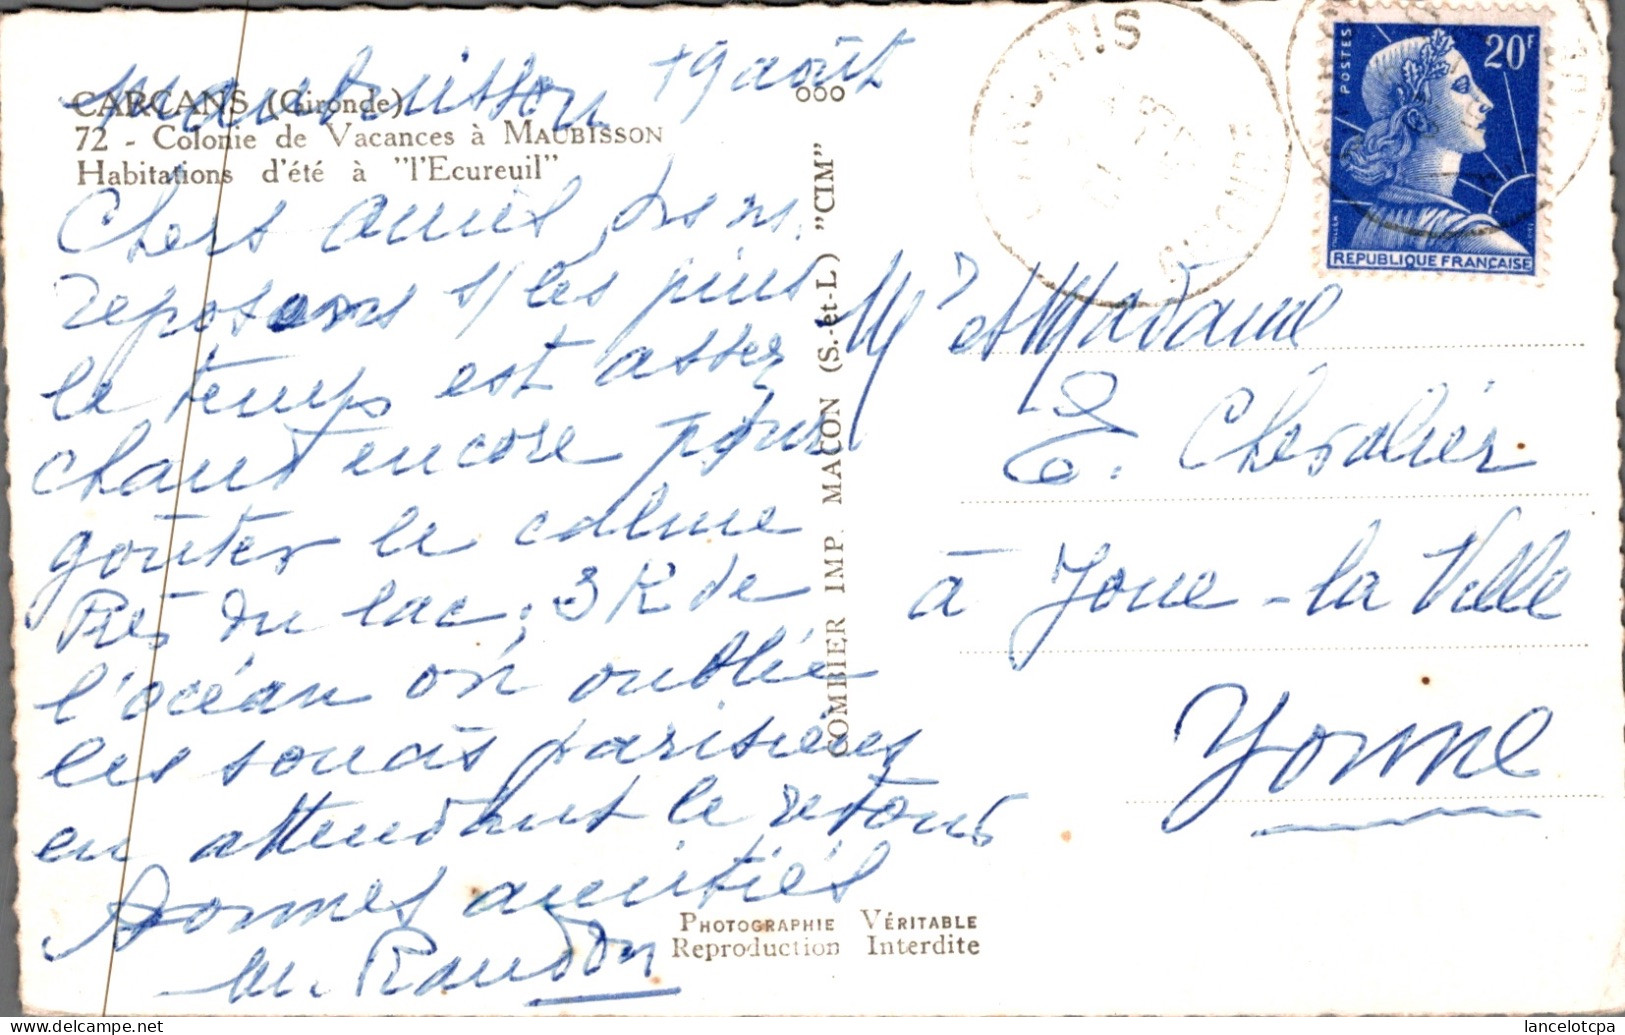 Maubuisson 19 août
CARCANS (Gironde)
72 - Colonie de Vacances à MAUBISSON
Habitations d'été à "l'Ecureuil"
Chers amis,
reposons s/ les pins
le temps est assez
chaud encore pour
goûter le calme
Près du lac, 3 K de
l'océan on oublie
les soucis parisiens
en attendant le retour
Bonnes amitiés
M. Raudon
COMBIER IMP. MACON (S.-et-L) "CIM"
CARCANS
GIRONDE
POSTES
20F
REPUBLIQUE FRANÇAISE
Mr et Madame
E. Chevalier
à Joue-la Ville
Yonne
PHOTOGRAPHIE VÉRITABLE
Reproduction Interdite
lancelotcpa